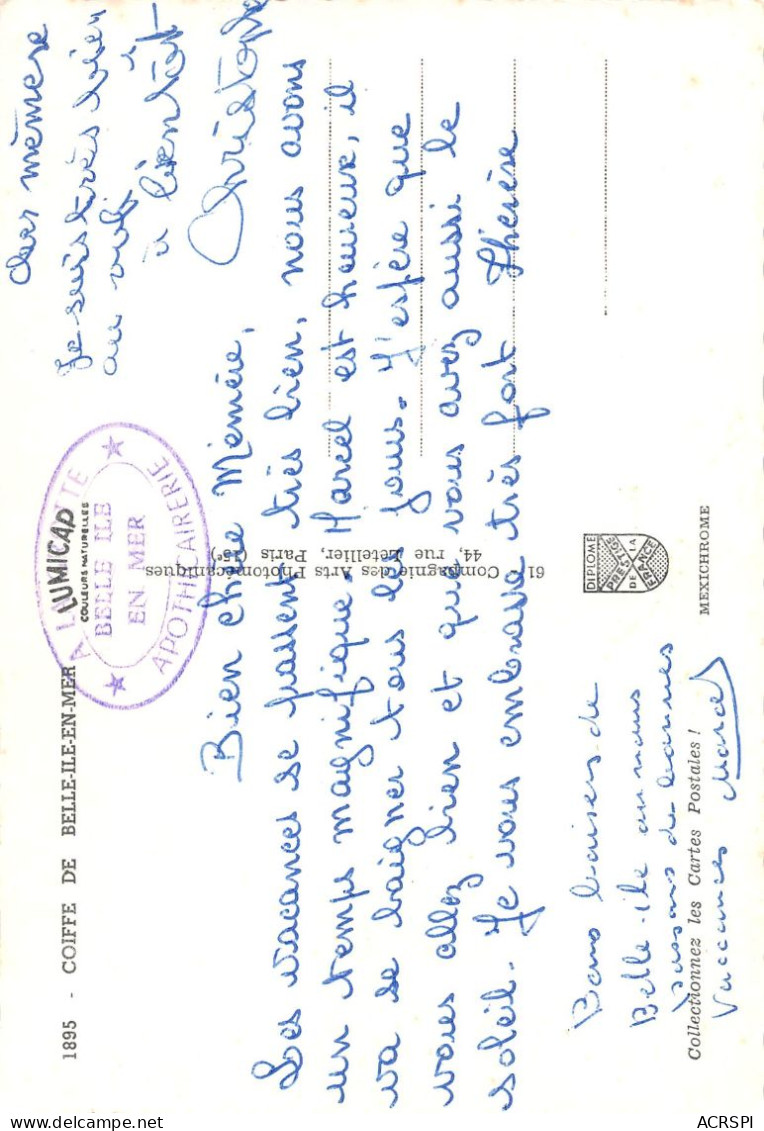 1895 - COIFFE DE BELLE-ILE-EN-MER
LUMICAP
COULEURS NATURELLES
BELLE ILE
EN MER
APOTHICAIRERIE
cher mémère
Je suis très bien
au
à bientôt
Christophe
Bien chère Mémère,
Les vacances se passent très bien, nous avons
un temps magnifique. Marcel est heureux, il
va se baigner tous les jours. J'espère que
vous allez bien et que vous avez aussi le
soleil. Je vous embrasse très fort Thérèse
61 - Compagnie des Arts Photomécaniques
44, rue Letellier, Paris (15e)
DIPLOME
PRESTIGE
DE LA
FRANCE
MEXICHROME
Bons baisers de
Belle-ile ou nous
passons de bonnes
Vaccances Marcel
Collectionnez les Cartes Postales !
ACRSPI